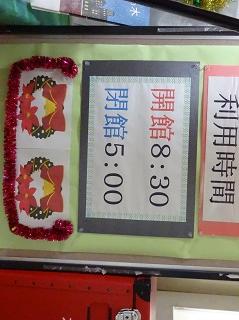 利用時間
開館 8:30
閉館 5:00